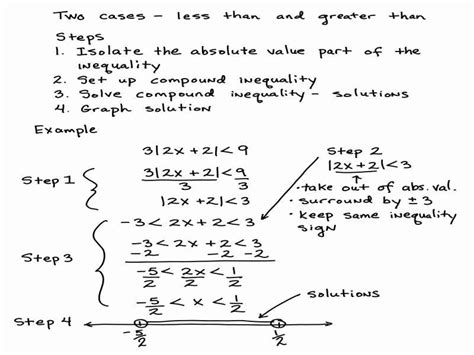 Two cases – less than and greater than
Steps
1. Isolate the absolute value part of the
inequality
2. Set up compound inequality
3. Solve compound inequality – solutions
4. Graph solution
Example
3|2x + 2| < 9
Step 1
3|2x + 2| < 9
3 3
|2x + 2| < 3
Step 2
|2x + 2| < 3
• take out of abs. val.
• surround by ± 3
• keep same inequality
sign
Step 3
-3 < 2x + 2 < 3
-3 < 2x + 2 < 3
-2 -2 -2
-5/2 < 2x/2 < 1/2
-5/2 < x < 1/2
solutions
Step 4
-5/2 1/2